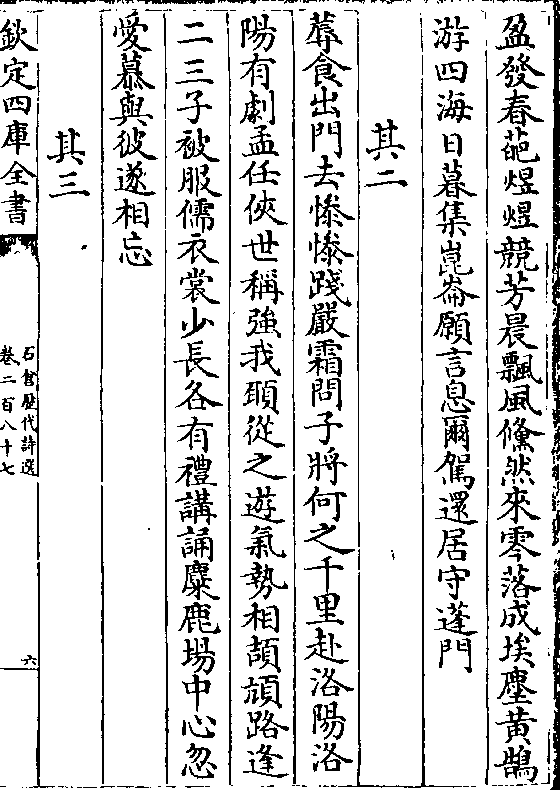 盈發春葩煜煜競芳晨飄風儵然來零落成埃塵黄鵠
游四海日暮集崑崙願言息爾駕還居守蓬門
其二
蓐食出門去慘慘踐嚴霜問子將何之千里赴洛陽洛
陽有劇孟任俠世稱強我頤從之遊氣勢相頡頏路逢
二三子被服儒衣裳少長各有禮講誦麋鹿場中心忽
愛慕與彼遂相忘
其三
欽定四庫全書
石倉歷代詩選
卷二百八十七
六